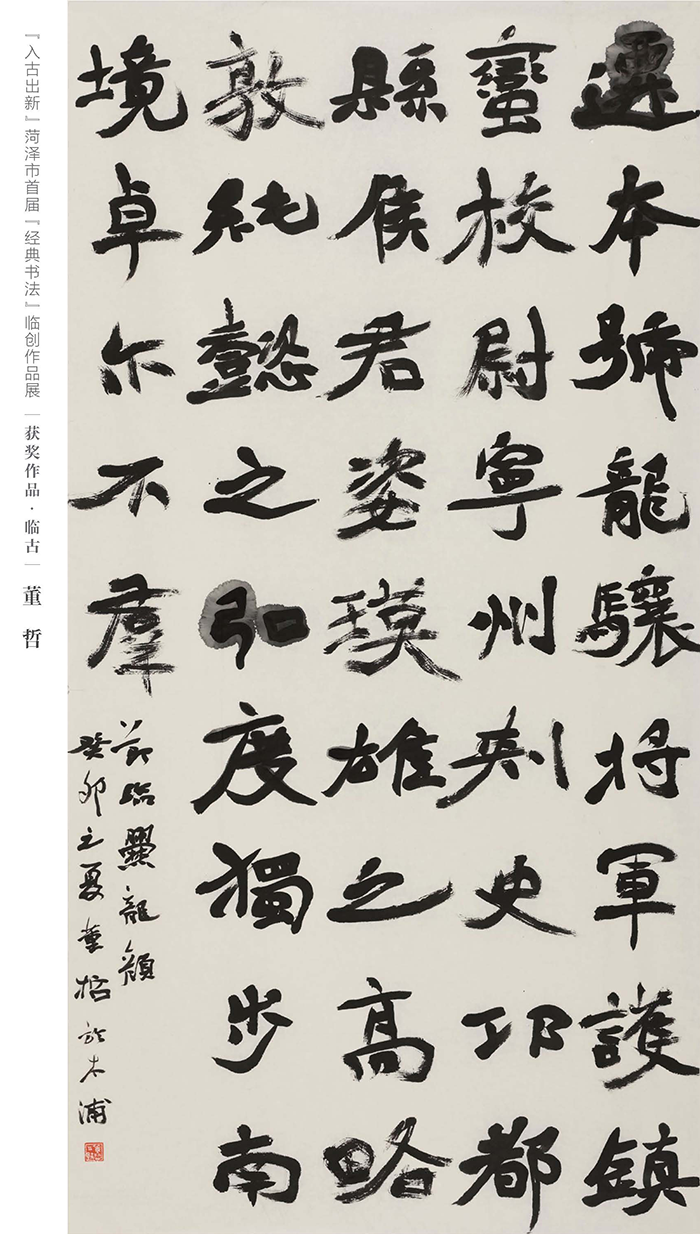 遷本號龍驤将軍護鎮
蠻校尉寧州刾史邛都
縣侯君姿瑛雄之高略
敦純懿之弘度獨步南
境卓尓不羣
節臨爨龍顏
癸卯之夏董哲於浦
『入古出新』菏泽市首届『经典书法』临创作品展｜获奖作品·临古｜董哲